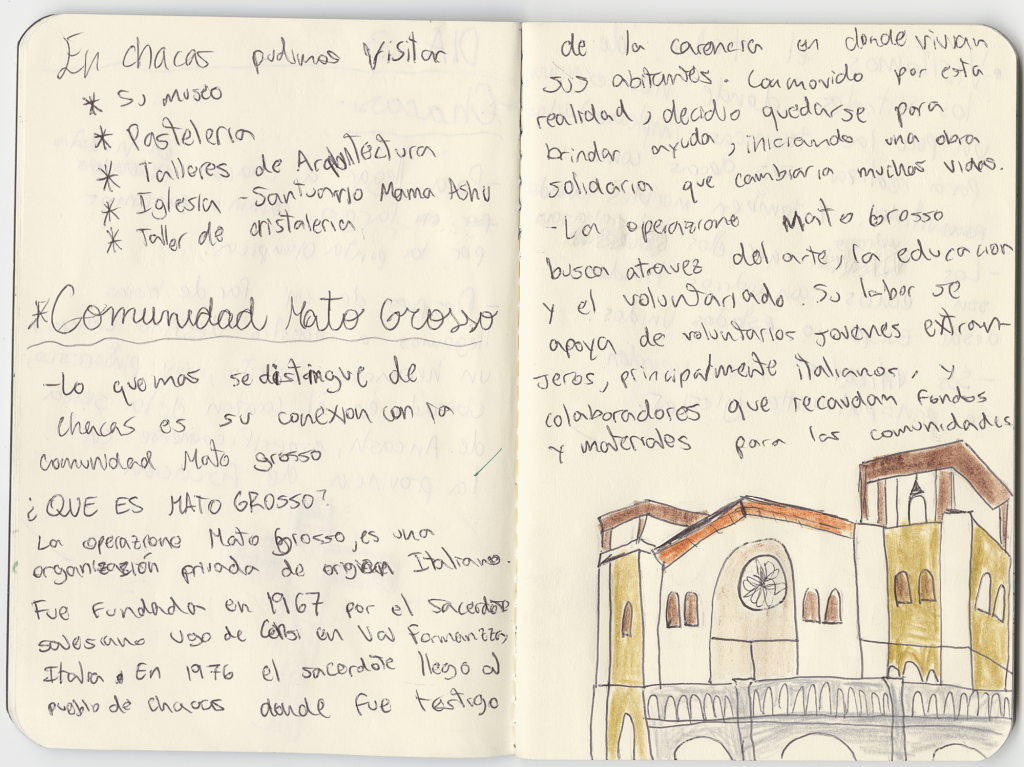 En chacas pudimos Visitar
* Su museo
* Pasteleria
* Talleres de Arquitectura
* Iglesia - Santuario Mama Ashu
* Taller de cristaleria
* Comunidad Mato Grosso
-Lo que mas se distingue de
chacas es su conexion con la
comunidad Mato grosso
¿QUE ES MATO GROSSO?
La operazione Mato Grosso, es una
organización privada de origen Italiano.
Fue fundada en 1967 por el sacerdote
salesiano Ugo de Censi en Val Formanzza,
Italia. En 1976 el sacerdote llego al
pueblo de chacas donde fue testigo
de la carencia en donde vivian
sus abitantes. Conmovido por esta
realidad, decidio quedarse para
brindar ayuda, iniciando una obra
solidaria que cambiaria muchas vidas.
-La operazione Mato Grosso
busca atravez del arte, la educacion
y el voluntariado. Su labor se
apoya de voluntarios jovenes extran
jeros, principalmente italianos, y
colaboradores que recaudan fondos
y materiales para las comunidades.